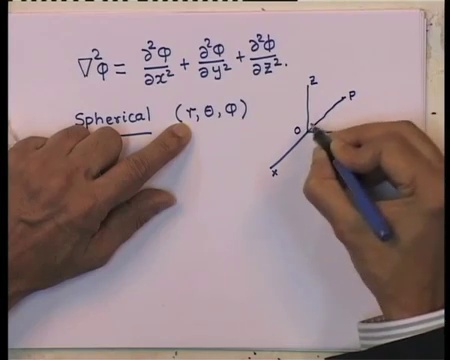 ∇²φ = ∂²φ/∂x² + ∂²φ/∂y² + ∂²φ/∂z².
Spherical (r, θ, φ)
z
P
O
x